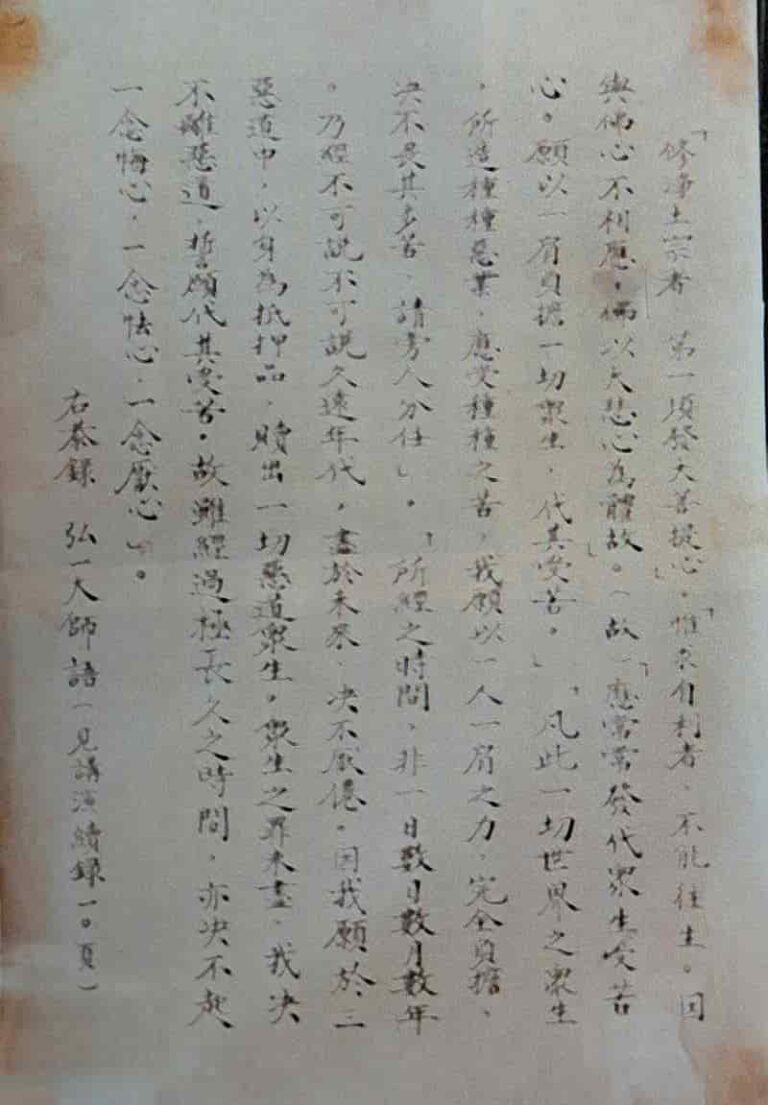 「修淨土宗者，第一須發大菩提心。」「惟求自利者，不能往生。因
與佛心不相應，佛以大悲心為體故。」（故）「應常常發代眾生受苦
心。願以一肩負擔一切眾生，代其受苦。」「凡此一切世界之眾生
，所造種種惡業，應受種種之苦，我願以一人一肩之力，完全負擔、
決不畏其多苦，請旁人分任」。「所經之時間，非一日數日數月數年
。乃經不可説不可説久遠年代，盡於未來，決不厭倦。因我願於三
惡道中，以身為抵押品，贖出一切惡道眾生。眾生之罪未盡，我決
不離惡道，誓願代其受苦。故雖經過極長久之時間，亦決不起
一念悔心，一念怯心，一念厭心」。
右恭錄 弘一大師語（見講演續錄一〇頁）